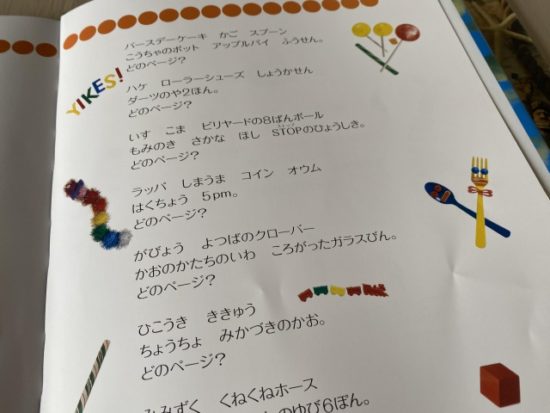 バースデーケーキ　かご　スプーン
こうちゃのポット　アップルパイ　ふうせん。
どのページ？
YIKES!
ハケ　ローラーシューズ　しょうかせん
ダーツのや2ほん。
どのページ？
いす　こま　ビリヤードの8ばんボール
もみのき　さかな　はし　STOPのひょうしき。
どのページ？
ラッパ　しまうま　コイン　オウム
はくちょう　5pm。
どのページ？
がびょう　よつばのクローバー
かおのかたちのいわ　ころがったガラスびん。
どのページ？
ひこうき　ききゅう
ちょうちょ　みかづきのかお。
どのページ？
みみずく　くねくねホース
のゆび6ぽん。